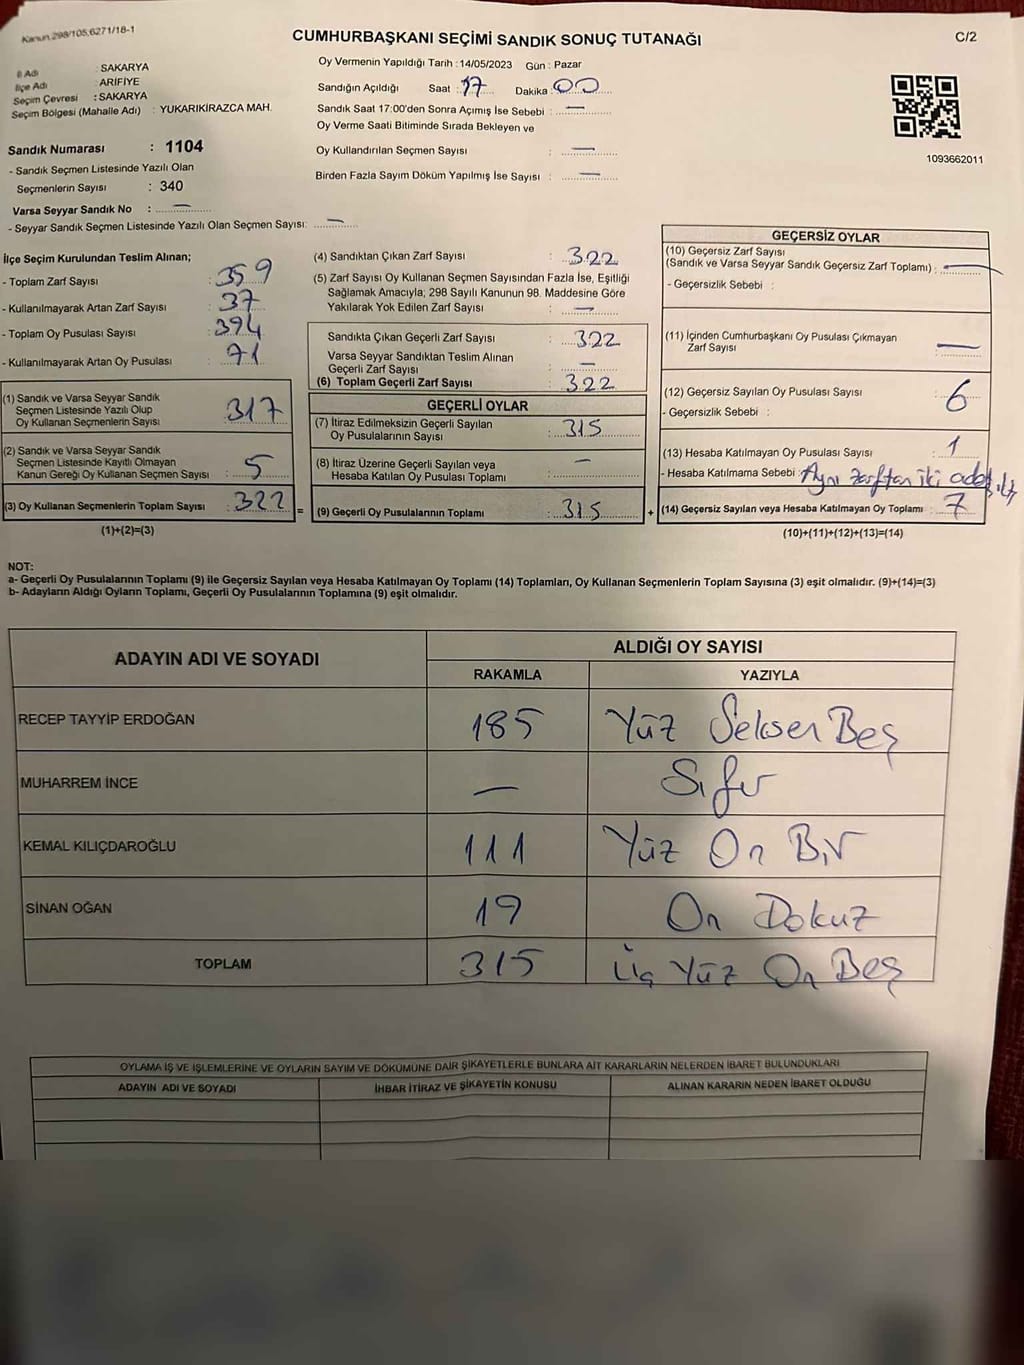 Kanun.298/105,6271/18-1
CUMHURBAŞKANI SEÇİMİ SANDIK SONUÇ TUTANAĞI
C/2
İl Adı : SAKARYA
İlçe Adı : ARİFİYE
Seçim Çevresi : SAKARYA
Seçim Bölgesi (Mahalle Adı) : YUKARIKİRAZCA MAH.
Sandık Numarası : 1104
- Sandık Seçmen Listesinde Yazılı Olan
Seçmenlerin Sayısı : 340
Varsa Seyyar Sandık No : —
- Seyyar Sandık Seçmen Listesinde Yazılı Olan Seçmen Sayısı: —
Oy Vermenin Yapıldığı Tarih : 14/05/2023 Gün : Pazar
Sandığın Açıldığı Saat : 17 Dakika : 00
Sandık Saat 17:00'den Sonra Açımış İse Sebebi : —
Oy Verme Saati Bitiminde Sırada Bekleyen ve
Oy Kullandırılan Seçmen Sayısı : —
Birden Fazla Sayım Döküm Yapılmış İse Sayısı : —
1093662011
İlçe Seçim Kurulundan Teslim Alınan;
- Toplam Zarf Sayısı : 359
- Kullanılmayarak Artan Zarf Sayısı : 37
- Toplam Oy Pusulası Sayısı : 394
- Kullanılmayarak Artan Oy Pusulası : 71
(1) Sandık ve Varsa Seyyar Sandık
Seçmen Listesinde Yazılı Olup
Oy Kullanan Seçmenlerin Sayısı : 317
(2) Sandık ve Varsa Seyyar Sandık
Seçmen Listesinde Kayıtlı Olmayan
Kanun Gereği Oy Kullanan Seçmen Sayısı : 5
(3) Oy Kullanan Seçmenlerin Toplam Sayısı : 322 =
(1)+(2)=(3)
(4) Sandıktan Çıkan Zarf Sayısı : 322
(5) Zarf Sayısı Oy Kullanan Seçmen Sayısından Fazla İse, Eşitliği
Sağlamak Amacıyla; 298 Sayılı Kanunun 98. Maddesine Göre
Yakılarak Yok Edilen Zarf Sayısı : —
Sandıkta Çıkan Geçerli Zarf Sayısı : 322
Varsa Seyyar Sandıktan Teslim Alınan
Geçerli Zarf Sayısı : —
(6) Toplam Geçerli Zarf Sayısı : 322
GEÇERLİ OYLAR
(7) İtiraz Edilmeksizin Geçerli Sayılan
Oy Pusulalarının Sayısı : 315
(8) İtiraz Üzerine Geçerli Sayılan veya
Hesaba Katılan Oy Pusulası Toplamı : —
(9) Geçerli Oy Pusulalarının Toplamı : 315 +
GEÇERSİZ OYLAR
(10) Geçersiz Zarf Sayısı
(Sandık ve Varsa Seyyar Sandık Geçersiz Zarf Toplamı) : —
- Geçersizlik Sebebi :
(11) İçinden Cumhurbaşkanı Oy Pusulası Çıkmayan
Zarf Sayısı : —
(12) Geçersiz Sayılan Oy Pusulası Sayısı : 6
- Geçersizlik Sebebi :
(13) Hesaba Katılmayan Oy Pusulası Sayısı : 1
- Hesaba Katılmama Sebebi : Aynı zarftan iki adet
(14) Geçersiz Sayılan veya Hesaba Katılmayan Oy Toplamı : 7
(10)+(11)+(12)+(13)=(14)
NOT:
a- Geçerli Oy Pusulalarının Toplamı (9) ile Geçersiz Sayılan veya Hesaba Katılmayan Oy Toplamı (14) Toplamları, Oy Kullanan Seçmenlerin Toplam Sayısına (3) eşit olmalıdır. (9)+(14)=(3)
b- Adayların Aldığı Oyların Toplamı, Geçerli Oy Pusulalarının Toplamına (9) eşit olmalıdır.
ADAYIN ADI VE SOYADI
ALDIĞI OY SAYISI
RAKAMLA YAZIYLA
RECEP TAYYİP ERDOĞAN 185 Yüz Seksen Beş
MUHARREM İNCE — Sıfır
KEMAL KILIÇDAROĞLU 111 Yüz On Bir
SİNAN OĞAN 19 On Dokuz
TOPLAM 315 Üç Yüz On Beş
OYLAMA İŞ VE İŞLEMLERİNE VE OYLARIN SAYIM VE DÖKÜMÜNE DAİR ŞİKAYETLERLE BUNLARA AİT KARARLARIN NELERDEN İBARET BULUNDUKLARI
ADAYIN ADI VE SOYADI İHBAR İTİRAZ VE ŞİKAYETİN KONUSU ALINAN KARARIN NEDEN İBARET OLDUĞU